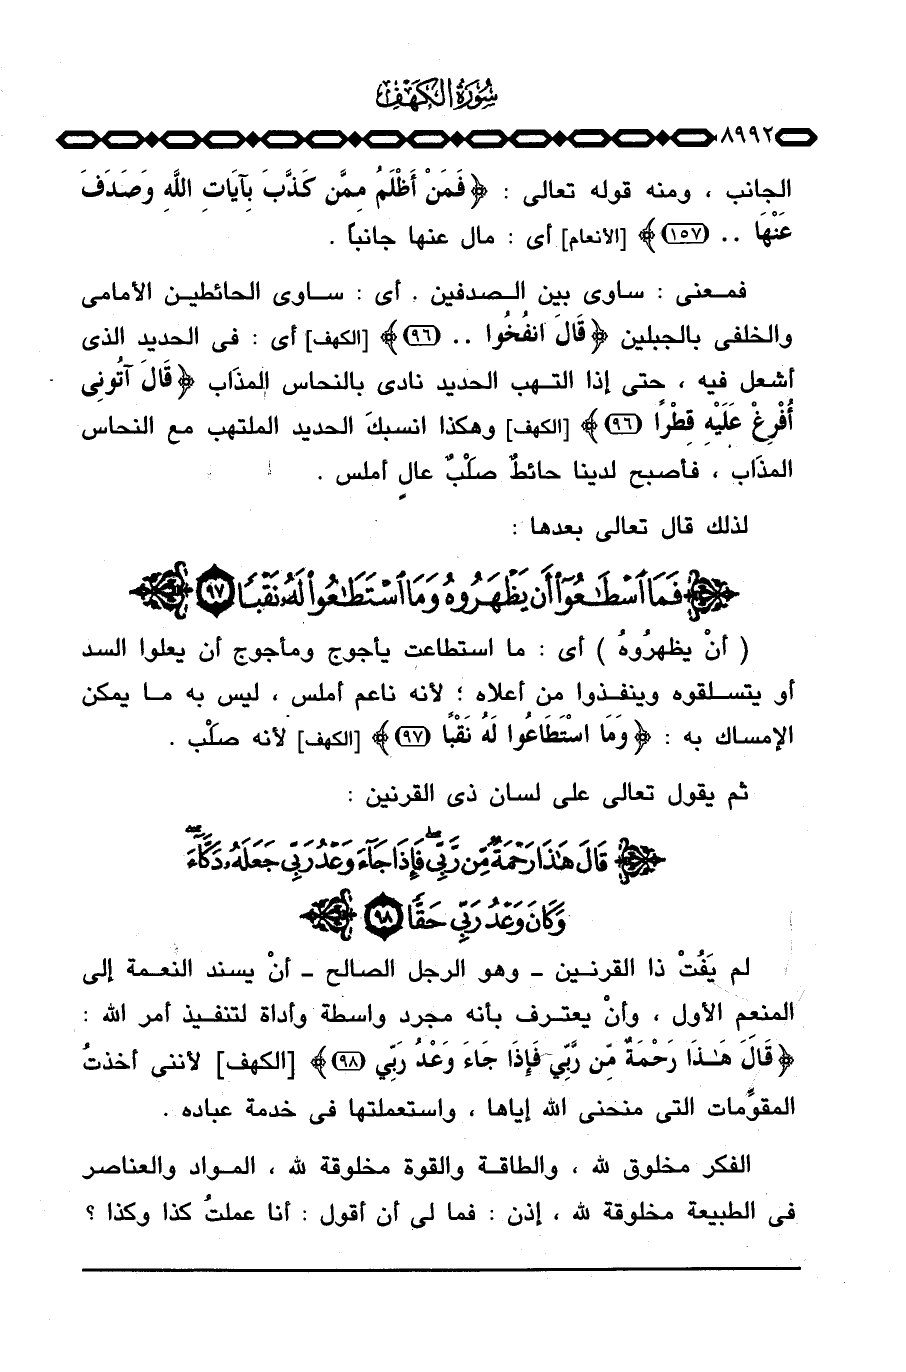 سُورَةُ الكَهْفِ
٨٩٩٢
الجانب ، ومنه قوله تعالى : ﴿ فَمَنْ أَظْلَمُ مِمَّن كَذَّبَ بِآيَاتِ اللَّهِ وَصَدَفَ
عَنْهَا .. (١٥٧) ﴾ [الأنعام] أى : مال عنها جانباً .
فمعنى : ساوى بين الصدفين . أى : ساوى الحائطين الأمامى
والخلفى بالجبلين ﴿ قَالَ انفُخُوا .. (٩٦) ﴾ [الكهف] أى : فى الحديد الذى
أشعل فيه ، حتى إذا التهب الحديد نادى بالنحاس المذَاب ﴿ قَالَ آتُونِى
أُفْرِغْ عَلَيْهِ قِطْرًا (٩٦) ﴾ [الكهف] وهكذا انسبكَ الحديد الملتهب مع النحاس
المذَاب ، فأصبح لدينا حائطٌ صلْبٌ عالٍ أملس .
لذلك قال تعالى بعدها :
﴿ فَمَا ٱسْطَـٰعُوٓا۟ أَن يَظْهَرُوهُ وَمَا ٱسْتَطَـٰعُوا۟ لَهُۥ نَقْبًا ٩٧ ﴾
( أنْ يظهرُوهُ ) أى : ما استطاعت يأجوج ومأجوج أن يعلوا السد
أو يتسلقوه وينفذوا من أعلاه ؛ لأنه ناعم أملس ، ليس به ما يمكن
الإمساك به : ﴿ وَمَا اسْتَطَاعُوا لَهُ نَقْبًا (٩٧) ﴾ [الكهف] لأنه صلْب .
ثم يقول تعالى على لسان ذى القرنين :
﴿ قَالَ هَـٰذَا رَحْمَةٌ مِّن رَّبِّى ۖ فَإِذَا جَآءَ وَعْدُ رَبِّى جَعَلَهُۥ دَكَّآءَ ۖ
وَكَانَ وَعْدُ رَبِّى حَقًّا ٩٨ ﴾
لم يَفُتْ ذا القرنين - وهو الرجل الصالح - أنْ يسند النعمة إلى
المنعم الأول ، وأنْ يعترف بأنه مجرد واسطة وأداة لتنفيذ أمر الله :
﴿ قَالَ هَـٰذَا رَحْمَةٌ مِّن رَّبِّي فَإِذَا جَاءَ وَعْدُ رَبِّي (٩٨) ﴾ [الكهف] لأننى أخذتُ
المقوِّمات التى منحنى الله إياها ، واستعملتها فى خدمة عباده .
الفكر مخلوق لله ، والطاقة والقوة مخلوقة لله ، المواد والعناصر
فى الطبيعة مخلوقة لله ، إذن : فما لى أن أقول : أنا عملتُ كذا وكذا ؟